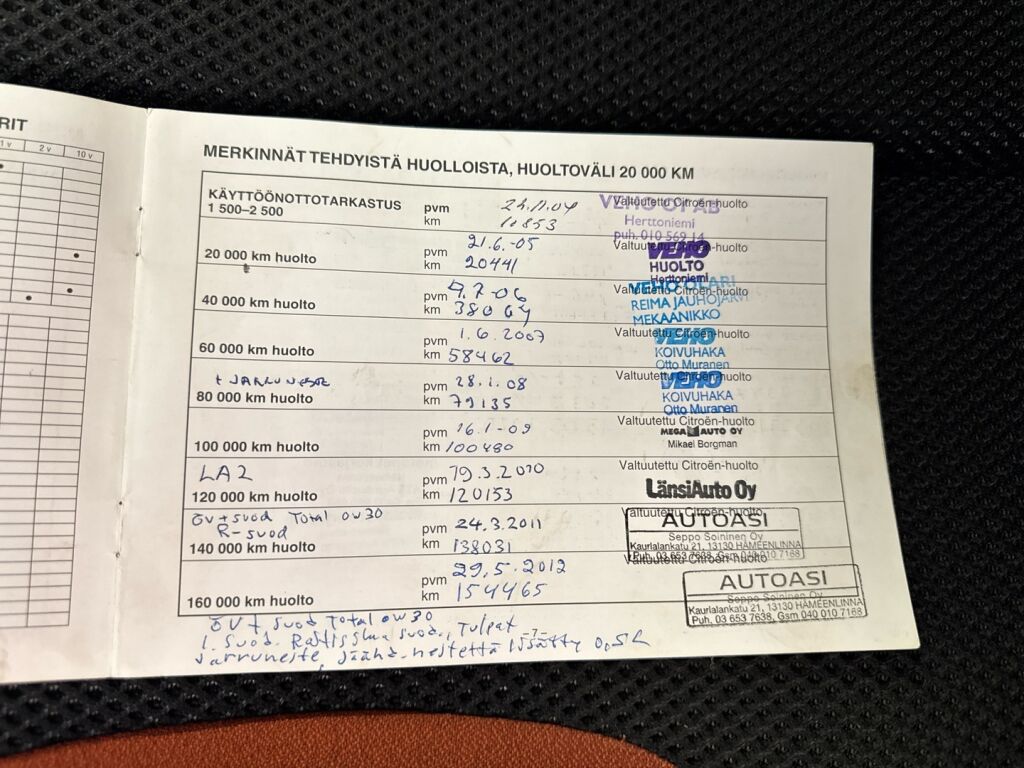 RIT
1 v 2 v 10 v
MERKINNÄT TEHDYISTÄ HUOLLOISTA, HUOLTOVÄLI 20 000 KM
KÄYTTÖÖNOTTOTARKASTUS
1 500–2 500
pvm
km 10853
Valtuutettu Citroën-huolto
VEHO OY AB
Herttoniemi
puh. 010 569 14
20 000 km huolto
pvm 21.6.-05
km 20441
Valtuutettu Citroën-huolto
VEHO
HUOLTO
Herttoniemi
40 000 km huolto
pvm
km 38064
Valtuutettu Citroën-huolto
VEHO OLARI
REIMA JAUHOJÄRVI
MEKAANIKKO
60 000 km huolto
pvm 1.6.2007
km 58462
Valtuutettu Citroën-huolto
VEHO
KOIVUHAKA
Otto Muranen
80 000 km huolto
pvm 28.1.08
km 79135
Valtuutettu Citroën-huolto
VEHO
KOIVUHAKA
Otto Muranen
100 000 km huolto
pvm 16.1-09
km 100480
Valtuutettu Citroën-huolto
MEGA AUTO OY
Mikael Borgman
LA2
120 000 km huolto
pvm 19.3.2010
km 120153
Valtuutettu Citroën-huolto
LänsiAuto Oy
ÖV+suod Total 0W30
R-suod
140 000 km huolto
pvm 24.3.2011
km 138031
Valtuutettu Citroën-huolto
AUTOASI
Seppo Soininen Oy
Kaurialankatu 21, 13130 HÄMEENLINNA
Puh. 03 653 7638, Gsm 040 010 7168
160 000 km huolto
pvm 29.5.2012
km 154465
Valtuutettu Citroën-huolto
AUTOASI
Seppo Soininen Oy
Kaurialankatu 21, 13130 HÄMEENLINNA
Puh. 03 653 7638, Gsm 040 010 7168
ÖV+ suod Total 0W30
I. suod. Raitisilma suod., Tulpat
–7–
Jarruneste, jäähd. nestettä lisätty 0,5L